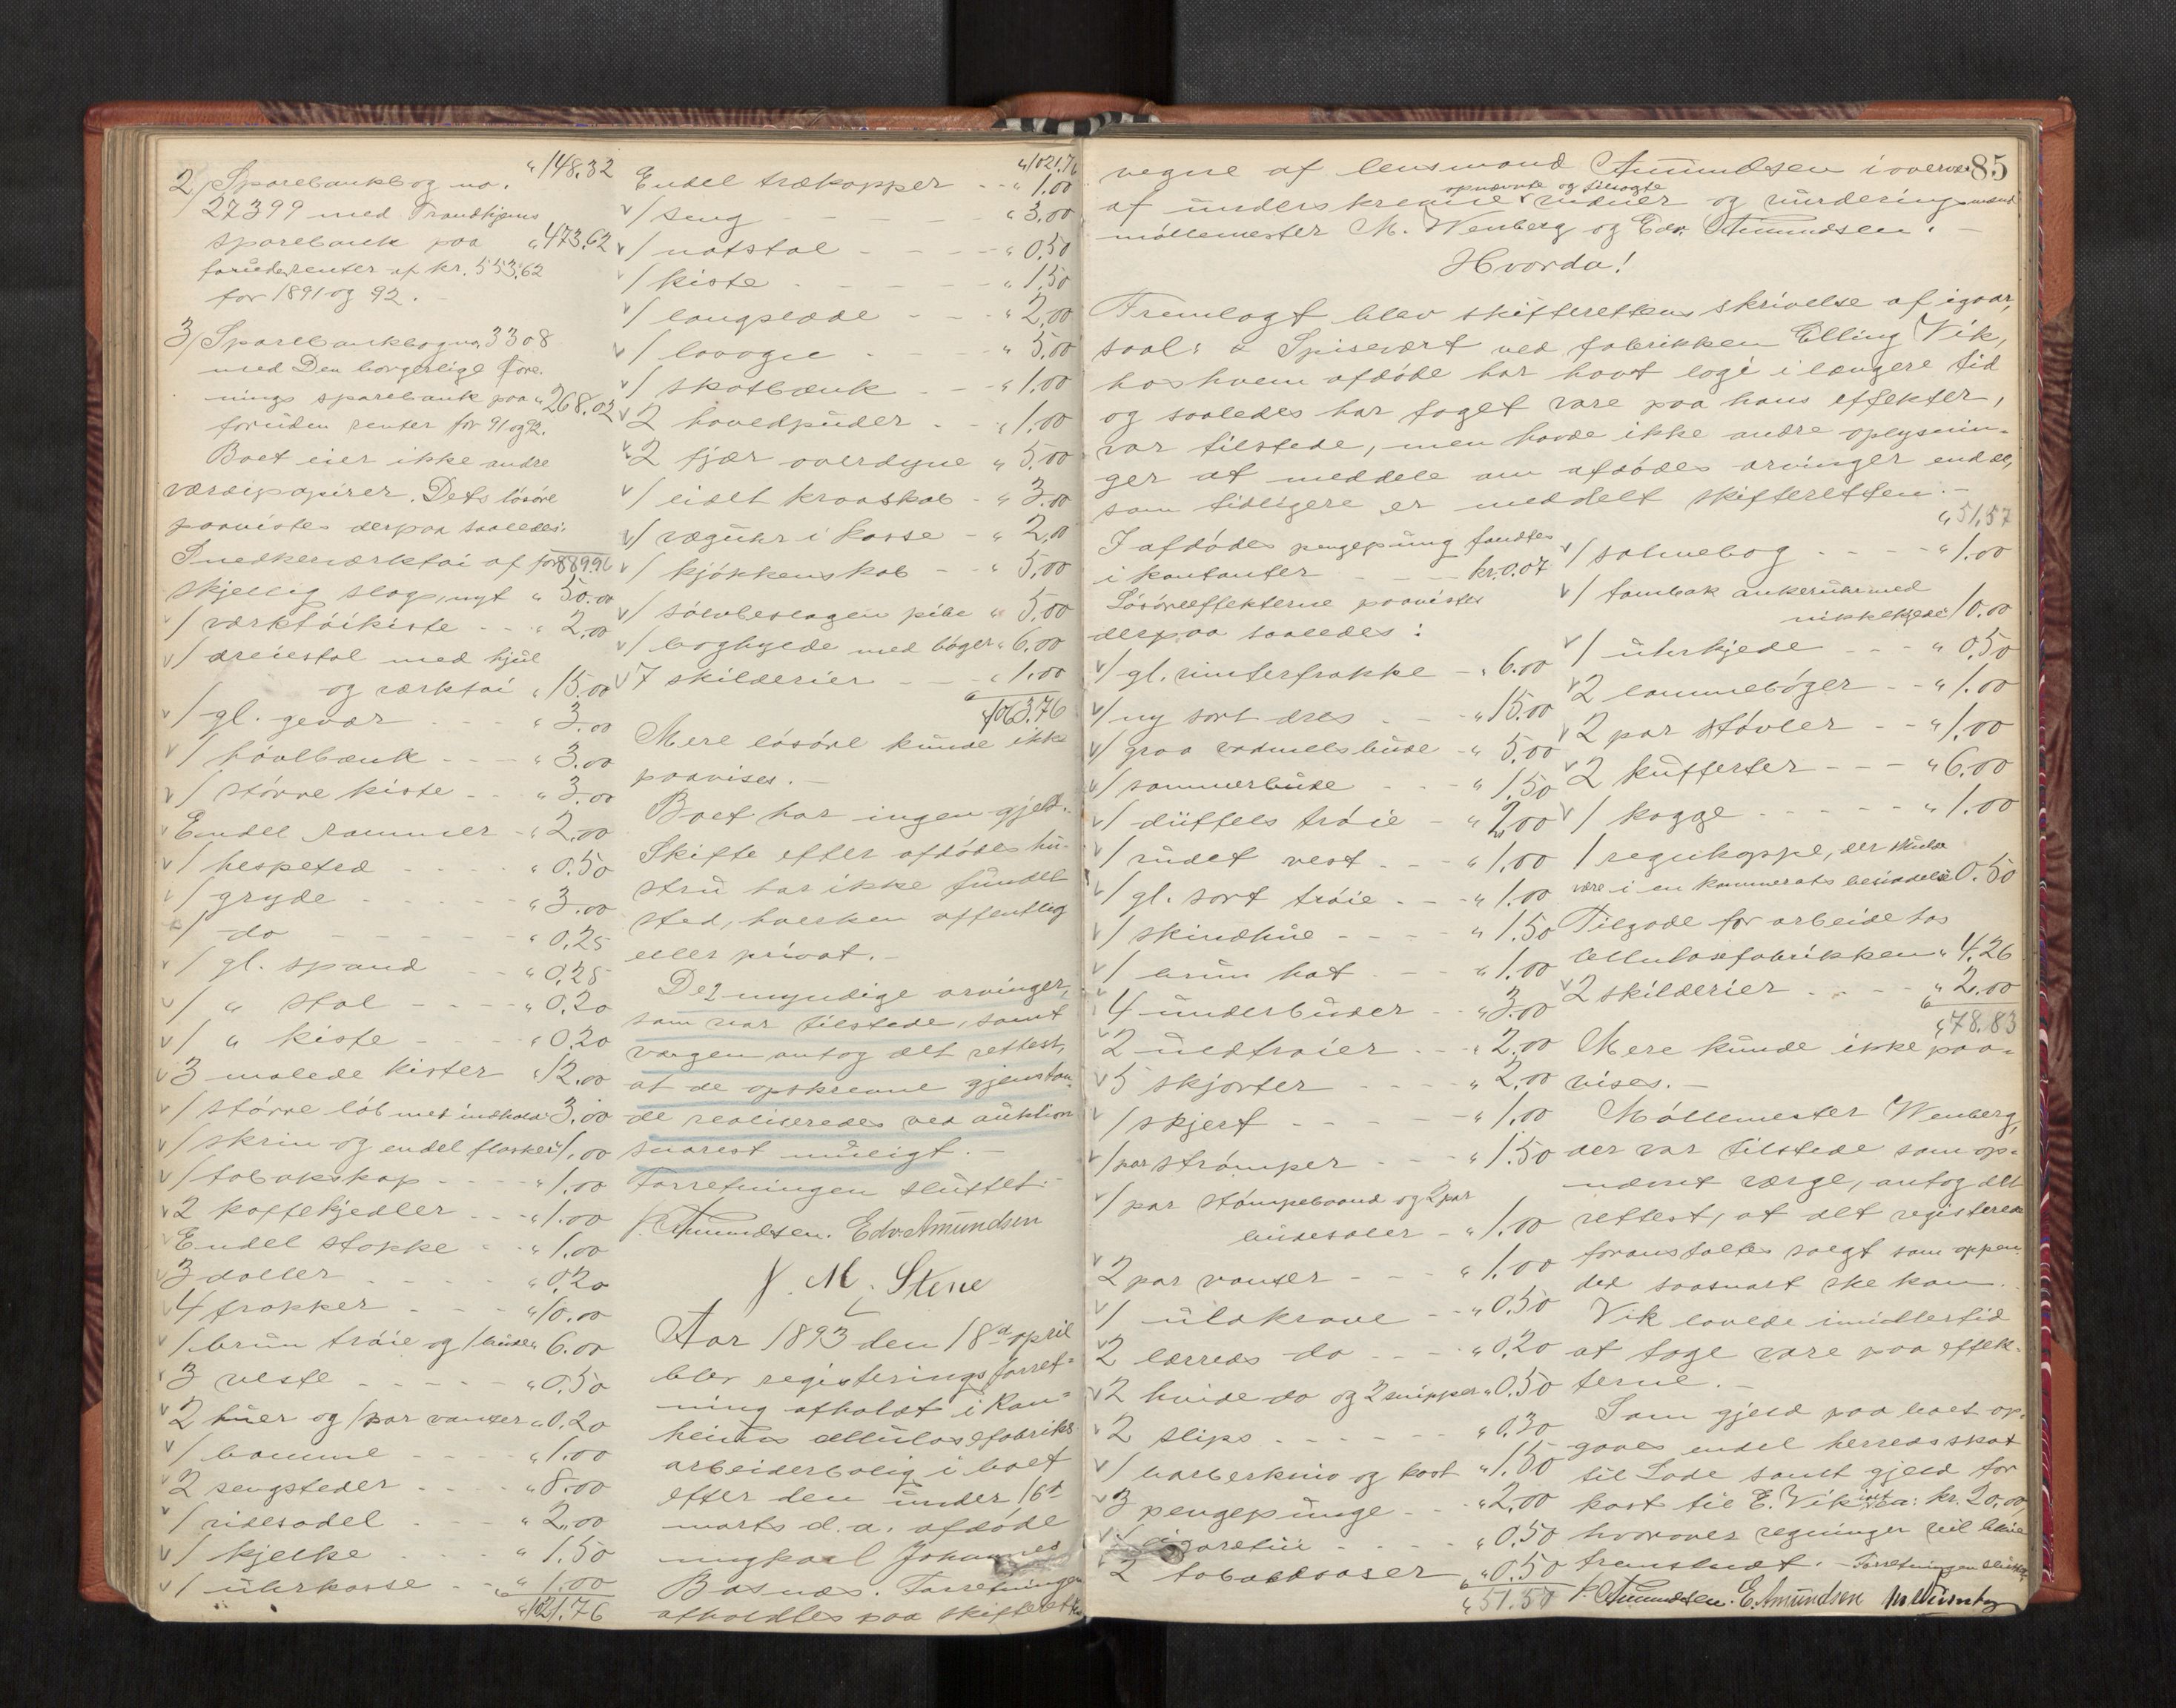 " 148.32
2/ Sparebankbog no.
27399 med Trondhjems
sparebank paa " 473.62
foruden renter af kr. 553.62
for 1891 og 92.
3/ Sparebankbog no 3308
med Den borgerlige Fore-
nings sparebank paa " 268.02
foruden renter for 91 og 92.
Boet eier ikke andre
værdipapirer. Dets løsøre
paavistes derpaa saaledes:
889.96
Snedkerværktøi af for-
skjellig slags, nyt " 50.00
1 værktøikiste " 2.00
1 dreiestol med hjul
og værktøi " 15.00
1 gl. gevær " 3.00
1 høvlbænk " 3.00
1 større kiste " 3.00
Endel rammer " 2.00
1 hespetræ " 0.50
1 gryde " 3.00
1 do " 0.25
1 gl. spand " 0.25
1 " stol " 0.20
1 " kiste " 0.20
3 malede kister " 12.00
1 større løb med indhold " 3.00
1 skrin og endel flasker " 1.00
1 tobakskap " 1.00
2 kaffekjedler " 1.00
Endel stokke " 1.00
3 daller " 0.20
4 frakker " 10.00
1 brun trøie og 1 buxe " 6.00
3 veste " 0.50
2 huer og 1 par vanter " 0.20
1 bomme " 1.00
2 sengsteder " 8.00
1 ridesadel " 2.00
1 kjelke " 1.50
1 uhrkasse " 1.00
" 1021.76
" 1021.76
Endel trækopper " 1.00
1 seng " 3.00
1 natstol " 0.50
1 kiste " 1.50
1 langslæde " 2.00
1 lavogn " 5.00
1 skatbænk " 1.00
2 hovedpuder " 1.00
2 fjær overdyne " 5.00
1 eidelt kraaskab " 3.00
1 væguhr i kasse " 2.00
1 kjøkkenskab " 5.00
1 sølvbeslagen pibe " 5.00
1 boghylde med bøger " 6.00
7 skilderier " 1.00
" 1063.76
Mere løsøre kunde ikke
paavises.
Boet har ingen gjeld.
Skifte efter afdødes hu-
stru har ikke fundet
sted, hverken offentlig
eller privat.
De 2 myndige arvinger,
som var tilstede, samt
værgen antog det rettest,
at de opskrevne gjenstan-
de realiseredes ved auktion
snarest muligt.
Forretningen sluttet.
P. Amundsen. Edv. Amundsen
J. M. Stene
Aar 1893 den 18de april
blev registeringsforret-
ning afholdt i Ran-
heims cellulosefabriks
arbeiderbolig i boet
efter den under 16de
marts d.a. afdøde
ungkarl Johannes
Basnes. Forretningen
afholdtes paa skifterettens
85
vegne af lensmand Amundsen i overvær
af underskrevne opnævnte og tilsagte vidner og vurderingsmænd
møllemester M. Wenberg og Edv. Amundsen.
Hvorda!
Fremlagt blev skifterettens skrivelse af igaar,
saal: a Spisevært ved fabrikken Elling Vik,
hos hvem afdøde har havt logi i længere tid
og saaledes har taget vare paa hans effekter,
var tilstede, men havde ikke andre oplysnin-
ger at meddele om afdødes arvinger end de,
som tidligere er meddelt skifteretten.
I afdødes pengepung fandtes
i kontanter kr. 0.07
Løsøreeffekterne paavistes
derpaa saaledes:
1 gl. vinterfrakke " 6.00
1 ny sort dres " 15.00
1 graa vadmelsbuxe " 5.00
1 sommerbuxe " 1.50
1 düffels trøie " 2.00
1 rudet vest " 1.00
1 gl. sort trøie " 1.00
1 skindhue " 1.50
1 brun hat " 1.00
4 underbuxer " 3.00
2 uldtrøier " 2.00
5 skjorter " 2.00
1 skjert " 1.00
1 par strømper " 1.50
1 par strømpebaand og 2 par
buxeseler " 1.00
2 par vanter " 1.00
1 uldkrave " 0.50
2 lærreds do " 0.20
2 hvide do og 2 snipper " 0.50
2 slips " 0.30
1 barberkniv og kost " 1.50
3 pengepunge " 2.00
1 cigaretui " 0.50
2 tobaksdaaser " 0.50
" 51.57
" 51.57
1 salmebog " 1.00
1 tambak ankeruhr med
nikkelkjede 10.00
1 uhrkjede " 0.50
2 lommebøger " 1.00
2 par støvler " 1.00
2 kufferter " 6.00
1 kagge " 1.00
1 regnkappe, der skulde
være i en kammerats besiddelse 0.50
Tilgode for arbeide hos
cellulosefabrikken " 4.26
2 skilderier " 2.00
" 78.83
Mere kunde ikke paa-
vises.
Møllemester Wenberg,
der var tilstede som op-
nævnt værge, antog det
rettest, at det registrerede
foranstaltes solgt som oppen
ded saasnart ske kan.
Vik lovede imidlertid
at tage vare paa effek-
terne.
Som gjeld paa boet op-
gaves endel herredsskat
til Lade samt gjeld for
kost til E. Vik ca: kr. 20.00,
hvorover regninger vil blive
fremsendt. – Forretningen sluttet.
P. Amundsen. E. Amundsen M Wenberg